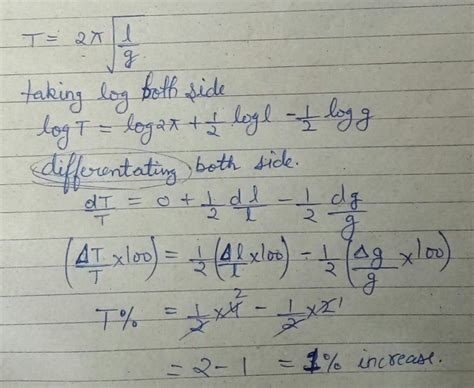 T = 2π√(l/g)
taking log both side
log T = log 2π + 1/2 log l - 1/2 log g
differentating both side.
dT/T = 0 + 1/2 dl/l - 1/2 dg/g
(ΔT/T ×100) = 1/2 (Δl/l ×100) - 1/2 (Δg/g ×100)
T% = 1/2 × 4 2 - 1/2 × 2 1
= 2 - 1 = 1% increase.